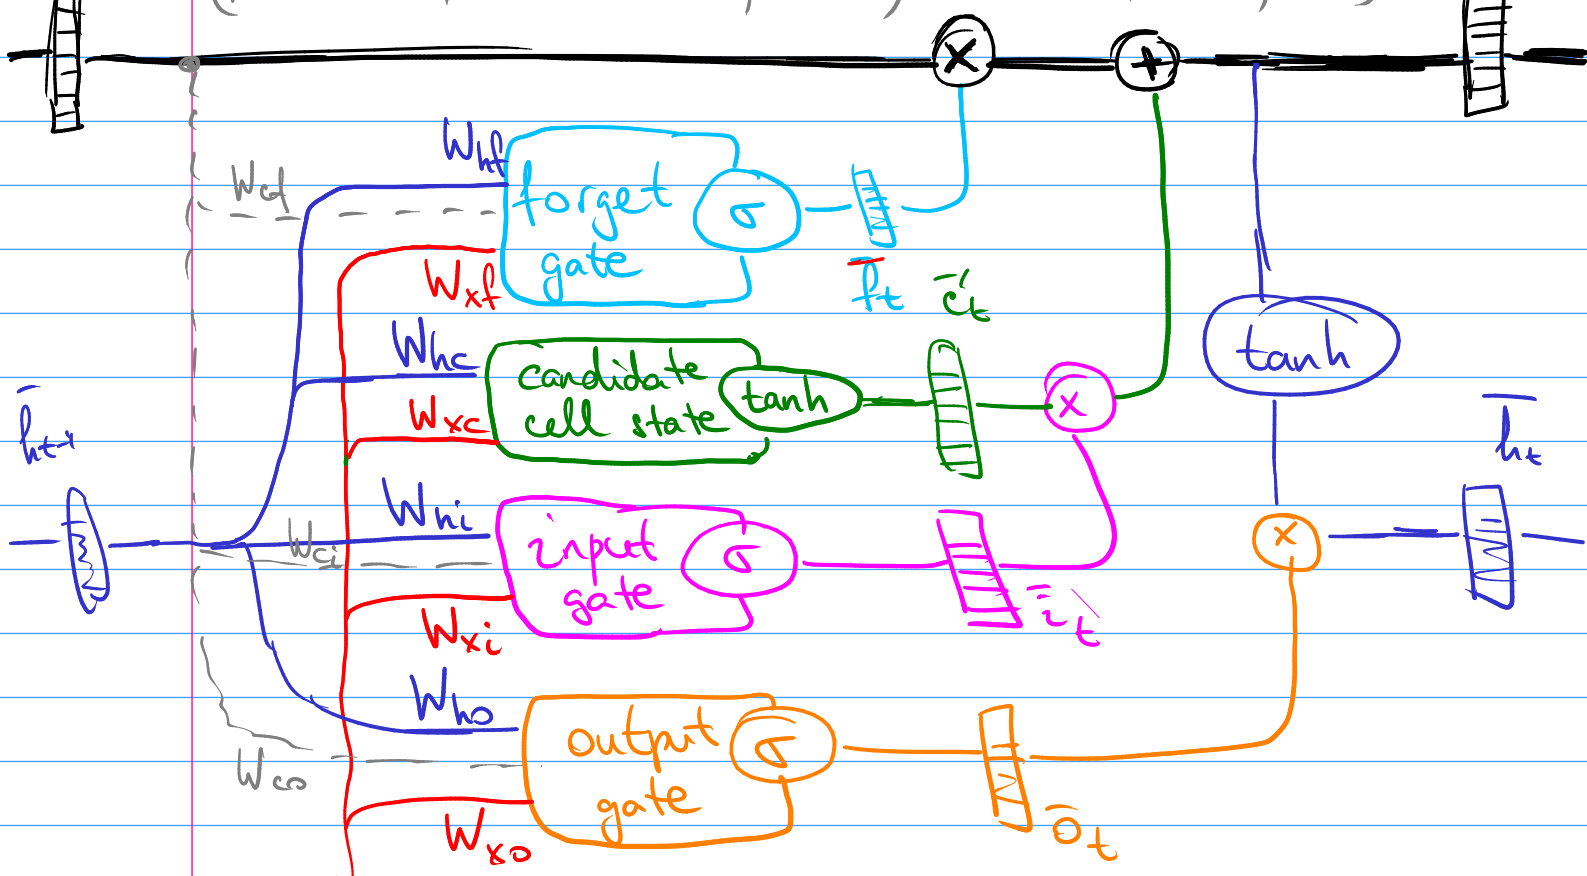 × +
W_hf
W_cf
forget σ
gate
W_xf
f̄_t
c̄'_t
W_hc
candidate tanh
cell state
W_xc
×
tanh
h̄_t-1
h̄_t
W_hi
W_ci
input σ
gate
×
W_xi
ī_t
W_ho
output σ
gate
W_co
W_xo
ō_t